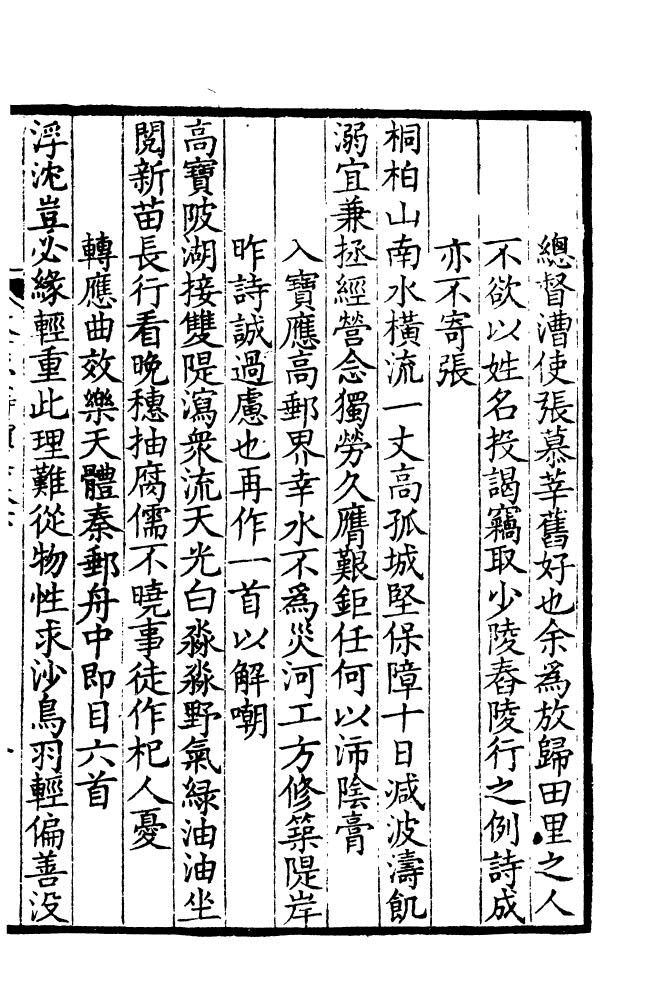 總督漕使張慕莘舊好也余爲放歸田里之人
不欲以姓名投謁竊取少陵舂陵行之例詩成
亦不寄張
桐柏山南水橫流一丈高孤城堅保障十日減波濤飢
溺宜兼拯經營念獨勞久膺艱鉅任何以沛陰膏
入寶應高郵界幸水不爲災河工方修築隄岸
昨詩誠過慮也再作一首以解嘲
高寶陂湖接雙隄瀉衆流天光白淼淼野氣綠油油坐
閱新苗長行看晚穗抽腐儒不曉事徒作杞人憂
轉應曲效樂天體秦郵舟中即目六首
浮沈豈必緣輕重此理難從物性求沙鳥羽輕偏善没